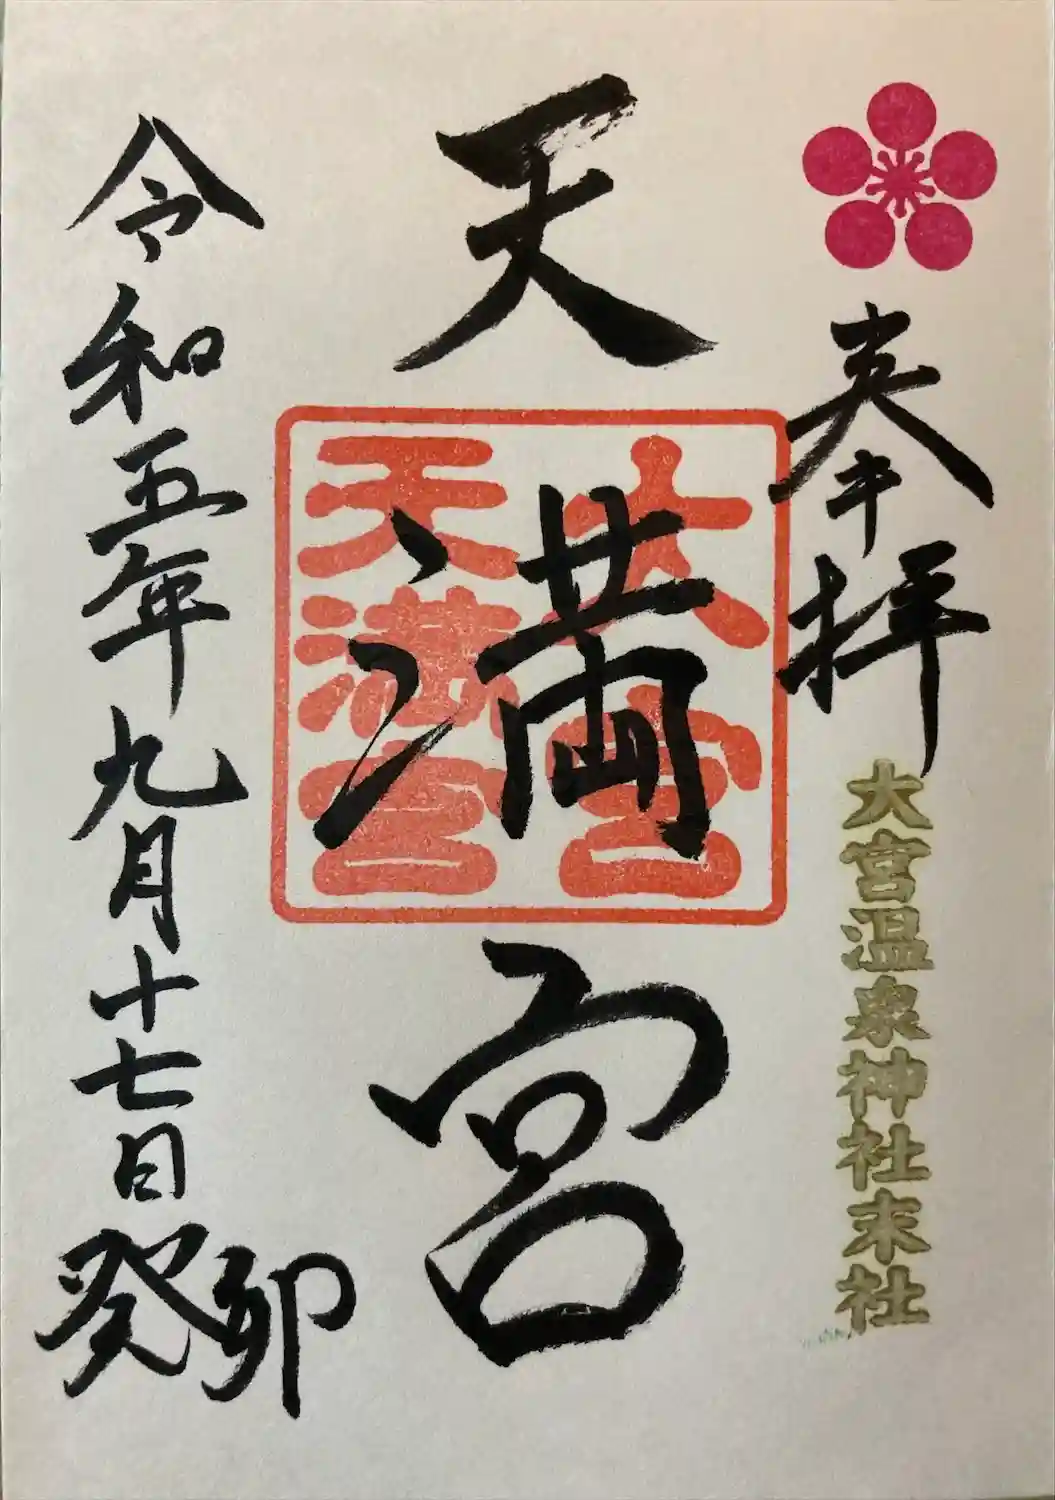 奉拝
大宮温泉神社末社
天満宮
大宮
天満宮
令和五年九月十七日癸卯